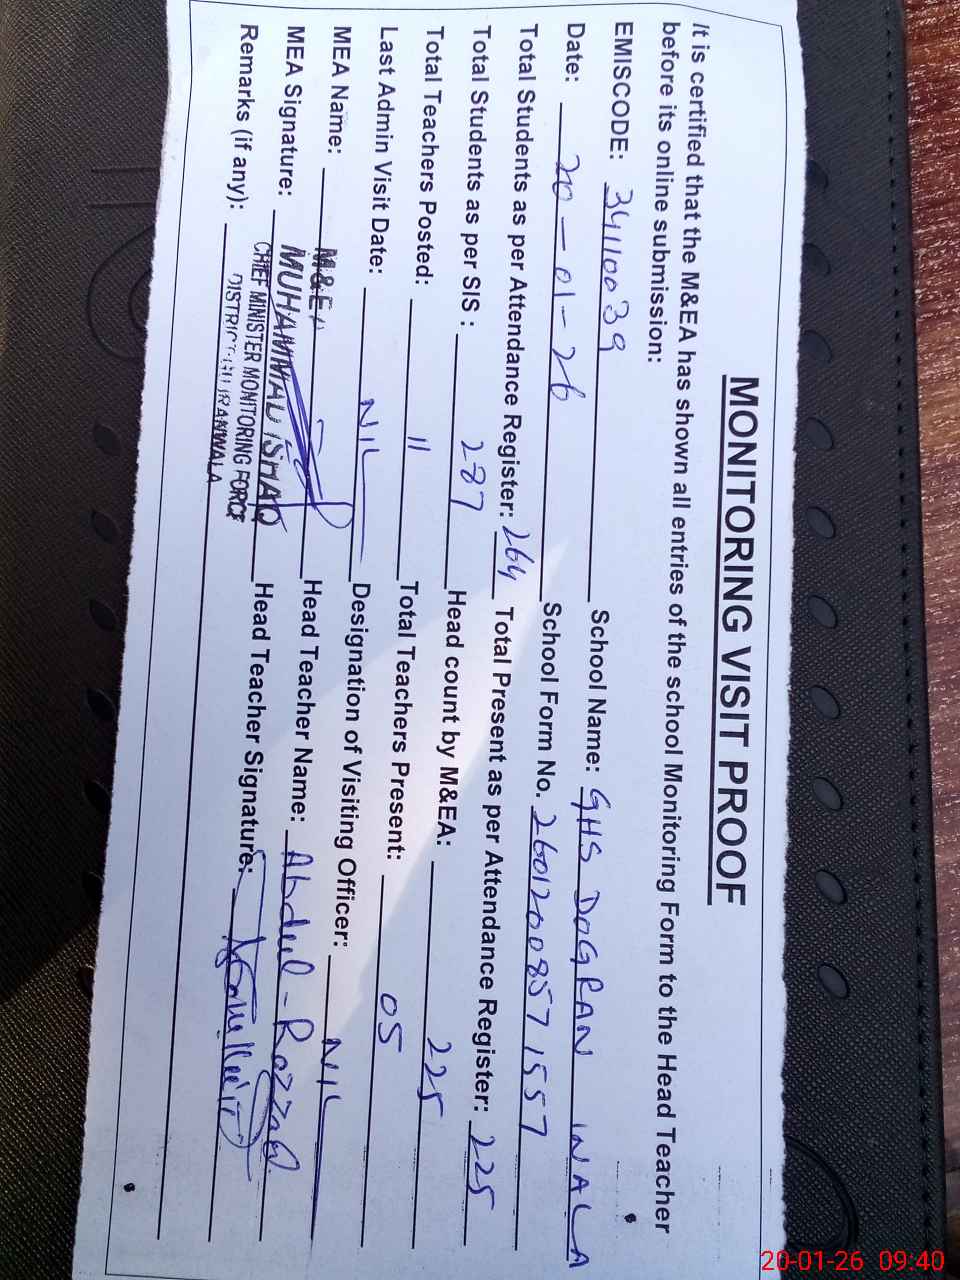 MONITORING VISIT PROOF
It is certified that the M&EA has shown all entries of the school Monitoring Form to the Head Teacher
before its online submission:
EMISCODE: 34110039 School Name: GHS DOGRAN WALA
Date: 20-01-26 School Form No. 2601200857 1557
Total Students as per Attendance Register: 264 Total Present as per Attendance Register: 225
Total Students as per SIS: 287 Head count by M&EA: 225
Total Teachers Posted: 11 Total Teachers Present: 05
Last Admin Visit Date: NIL Designation of Visiting Officer: NIL
MEA Name: M&EA Head Teacher Name: Abdul-Razzaq
MEA Signature: MUHAMMAD ISHAQ Head Teacher Signature:
CHIEF MINISTER MONITORING FORCE
Remarks (if any): DISTRICT GUJRANWALA
20-01-26 09:40